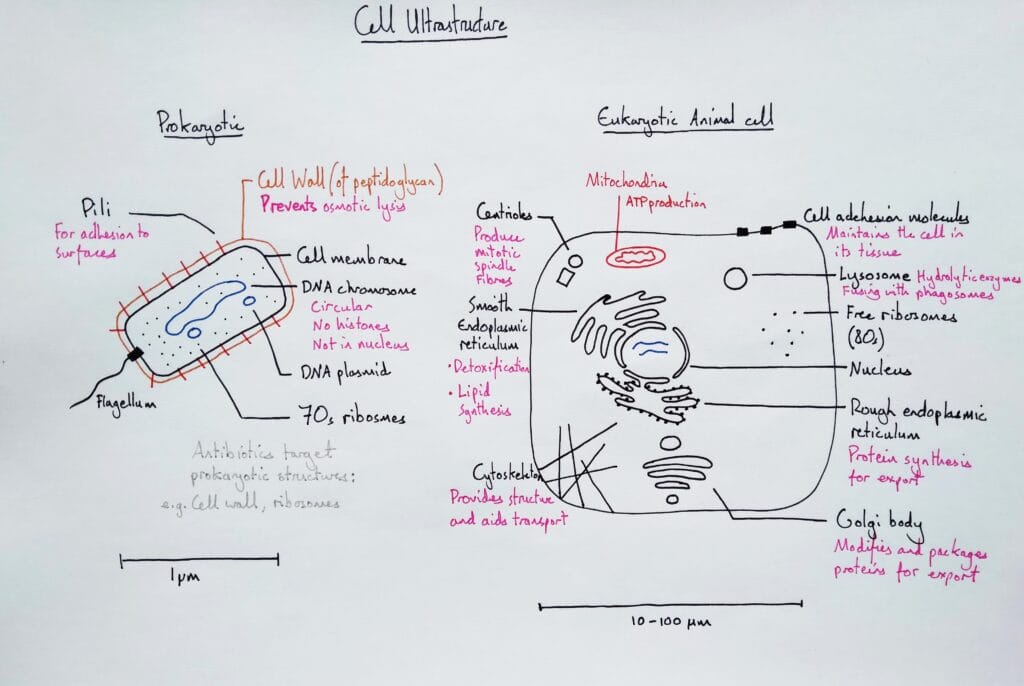 Cell Ultrastructure
Prokaryotic
Cell Wall (of peptidoglycan)
Prevents osmotic lysis
Pili
For adhesion to
surfaces
Cell membrane
DNA chromosome
Circular
No histones
Not in nucleus
DNA plasmid
Flagellum
70s ribosmes
Antibiotics target
prokaryotic structures:
e.g. Cell wall, ribosomes
1µm
Eukaryotic Animal cell
Mitochondria
ATP production
Centrioles
Produce
mitotic
spindle
Fibres
Smooth
Endoplasmic
reticulum
• Detoxification
• Lipid
Synthesis
Cytoskeleton
Provides structure
and aids transport
Cell adehesion molecules
Maintains the cell in
its tissue
Lysosome Hydrolytic enzymes
Fusing with phagosomes
Free ribosomes
(80s)
Nucleus
Rough endoplasmic
reticulum
Protein synthesis
for export
Golgi body
Modifies and packages
proteins for export
10-100 µm